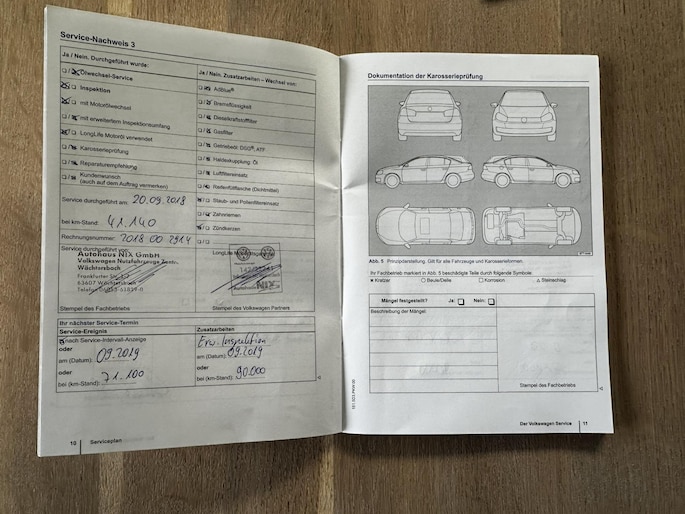 Service-Nachweis 3
Ja / Nein. Durchgeführt wurde:
Ölwechsel-Service
Inspektion
mit Motorölwechsel
mit erweitertem Inspektionsumfang
LongLife Motoröl verwendet
Karosserieprüfung
Reparaturempfehlung
Kundenwunsch
(auch auf dem Auftrag vermerken)
Service durchgeführt am: 20.09.2018
bei km-Stand: 41.140
Rechnungsnummer: 2018 00 2914
Service durchgeführt von:
Autohaus NIX GmbH
Volkswagen Nutzfahrzeuge Zentr.
Wächtersbach
Frankfurter Str.
63607 Wächtersbach
Telefon
Stempel des Fachbetriebs
Ja / Nein. Zusatzarbeiten – Wechsel von:
AdBlue®
Bremsflüssigkeit
Dieselkraftstofffilter
Gasfilter
Getriebeöl: DSG®, ATF
Haldexkupplung: Öl
Luftfiltereinsatz
Reifenfüllflasche (Dichtmittel)
Staub- und Pollenfiltereinsatz
Zahnriemen
Zündkerzen
NIX
Stempel des Volkswagen Partners
Ihr nächster Service-Termin
Service-Ereignis
nach Service-Intervall-Anzeige
oder
am (Datum): 09.2019
oder
bei (km-Stand): 71.100
Zusatzarbeiten
Erw. Inspektion
am (Datum): 09.2019
oder
bei (km-Stand): 90.000
10 Serviceplan
Dokumentation der Karosserieprüfung
Abb. 5 Prinzipdarstellung. Gilt für alle Fahrzeuge und Karosserieformen.
Ihr Fachbetrieb markiert in Abb. 5 beschädigte Teile durch folgende Symbole:
Kratzer Beule/Delle Korrosion Steinschlag
Mängel festgestellt? Ja: Nein:
Beschreibung der Mängel:
Stempel des Fachbetriebs
Der Volkswagen Service 11